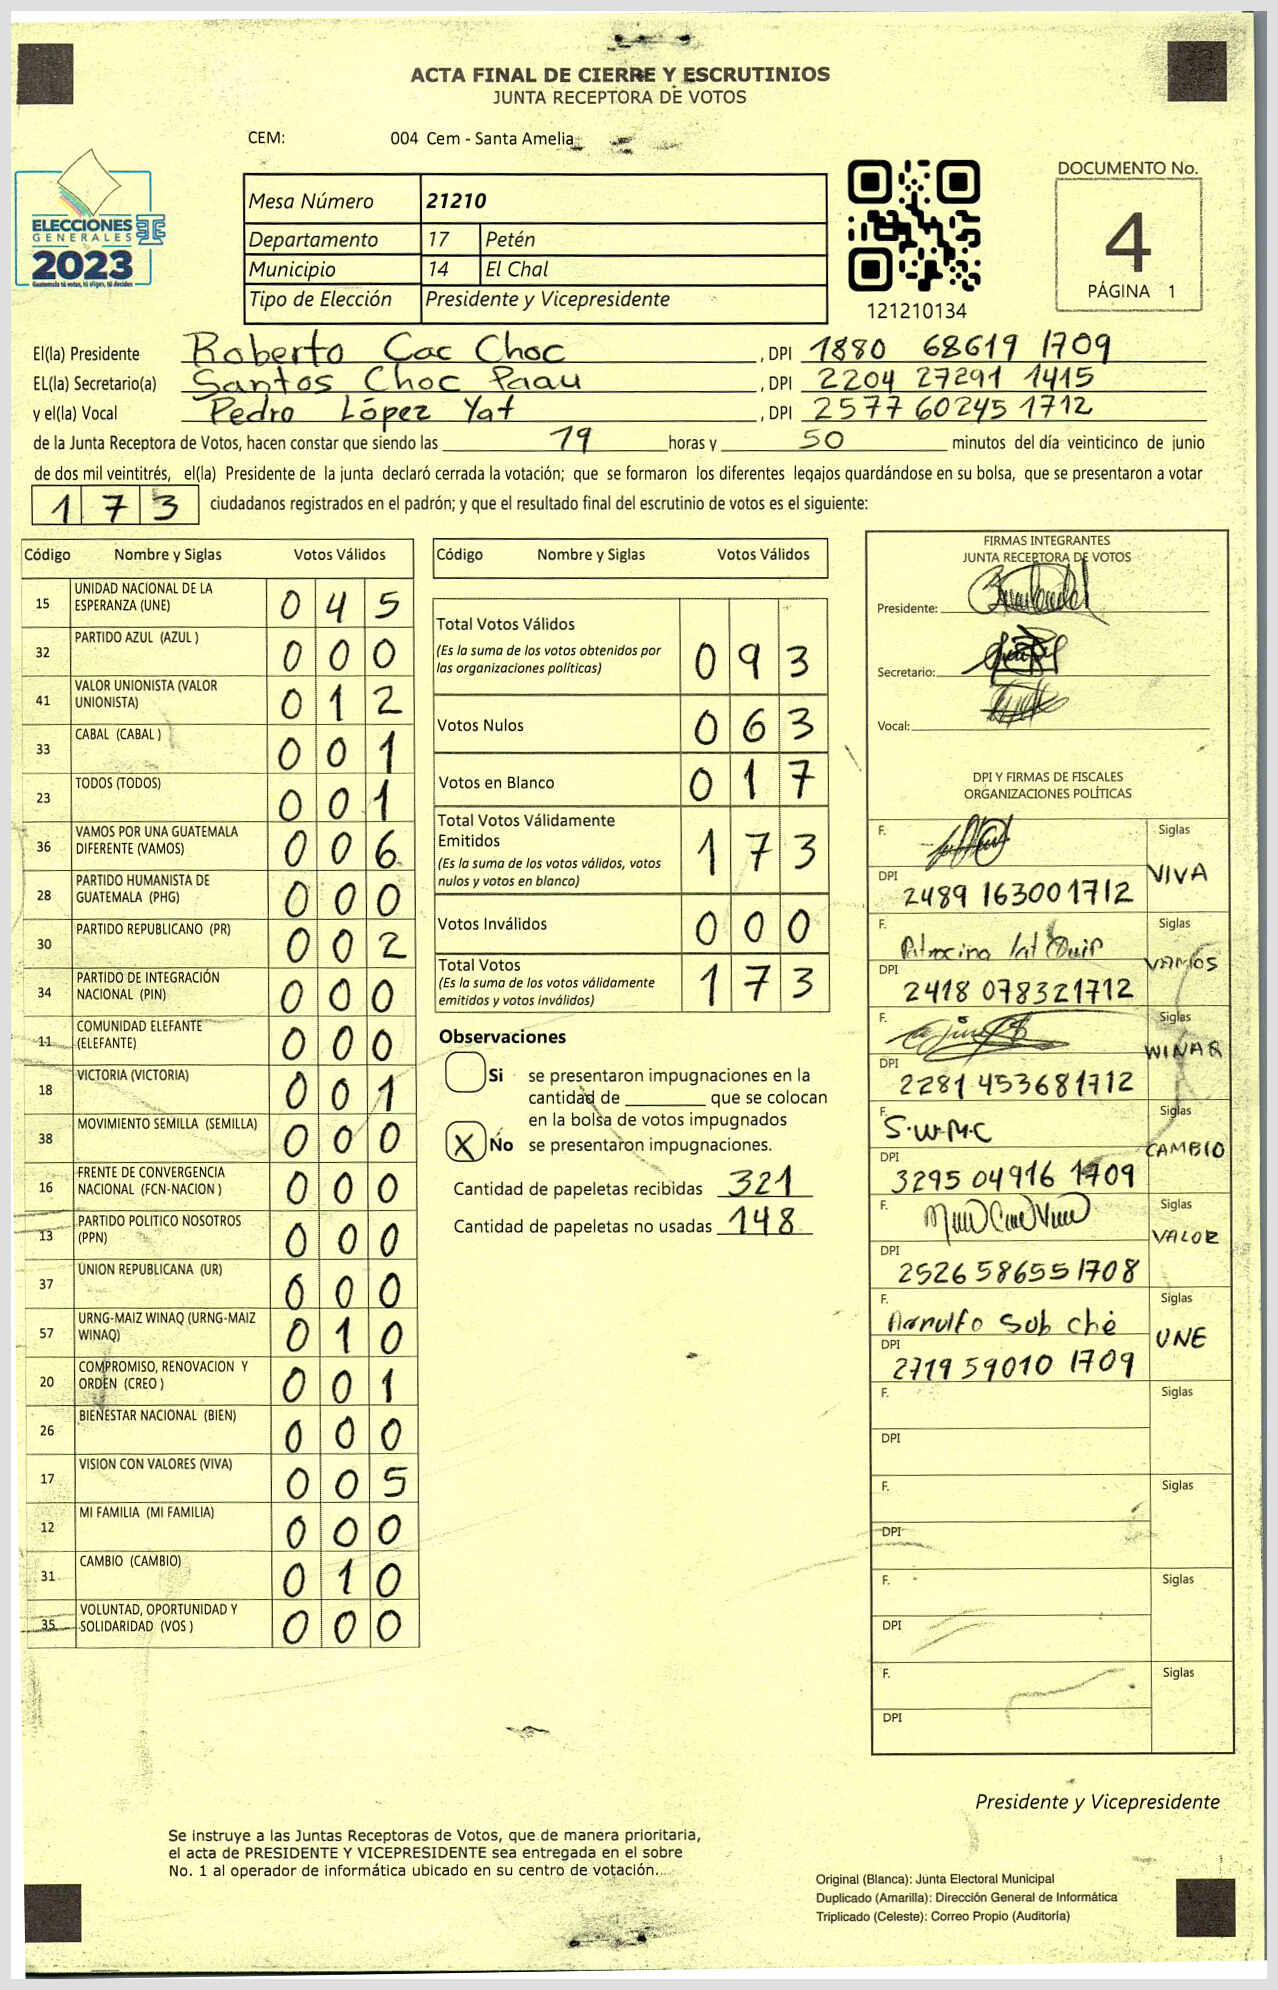 ACTA FINAL DE CIERRE Y ESCRUTINIOS
JUNTA RECEPTORA DE VOTOS
CEM: 004 Cem - Santa Amelia
ELECCIONES
GENERALES
2023
Guatemala tú votas, tú eliges, tú decides
Mesa Número 21210
Departamento 17 Petén
Municipio 14 El Chal
Tipo de Elección Presidente y Vicepresidente
121210134
DOCUMENTO No.
4
PÁGINA 1
El(la) Presidente Roberto Cac Choc , DPI 1880 68619 1709
EL(la) Secretario(a) Santos Choc Paau , DPI 2204 27291 1415
y el(la) Vocal Pedro López Yat , DPI 2577 60245 1712
de la Junta Receptora de Votos, hacen constar que siendo las 19 horas y 50 minutos del día veinticinco de junio
de dos mil veintitrés, el(la) Presidente de la junta declaró cerrada la votación; que se formaron los diferentes legajos quardándose en su bolsa, que se presentaron a votar
173 ciudadanos registrados en el padrón; y que el resultado final del escrutinio de votos es el siguiente:
Código Nombre y Siglas Votos Válidos
15 UNIDAD NACIONAL DE LA ESPERANZA (UNE) 0 4 5
32 PARTIDO AZUL (AZUL ) 0 0 0
41 VALOR UNIONISTA (VALOR UNIONISTA) 0 1 2
33 CABAL (CABAL ) 0 0 1
23 TODOS (TODOS) 0 0 1
36 VAMOS POR UNA GUATEMALA DIFERENTE (VAMOS) 0 0 6
28 PARTIDO HUMANISTA DE GUATEMALA (PHG) 0 0 0
30 PARTIDO REPUBLICANO (PR) 0 0 2
34 PARTIDO DE INTEGRACIÓN NACIONAL (PIN) 0 0 0
11 COMUNIDAD ELEFANTE (ELEFANTE) 0 0 0
18 VICTORIA (VICTORIA) 0 0 1
38 MOVIMIENTO SEMILLA (SEMILLA) 0 0 0
16 FRENTE DE CONVERGENCIA NACIONAL (FCN-NACION ) 0 0 0
13 PARTIDO POLITICO NOSOTROS (PPN) 0 0 0
37 UNION REPUBLICANA (UR) 0 0 0
57 URNG-MAIZ WINAQ (URNG-MAIZ WINAQ) 0 1 0
20 COMPROMISO, RENOVACION Y ORDEN (CREO ) 0 0 1
26 BIENESTAR NACIONAL (BIEN) 0 0 0
17 VISION CON VALORES (VIVA) 0 0 5
12 MI FAMILIA (MI FAMILIA) 0 0 0
31 CAMBIO (CAMBIO) 0 1 0
35 VOLUNTAD, OPORTUNIDAD Y SOLIDARIDAD (VOS ) 0 0 0
Código Nombre y Siglas Votos Válidos
Total Votos Válidos 0 9 3
(Es la suma de los votos obtenidos por
las organizaciones políticas)
Votos Nulos 0 6 3
Votos en Blanco 0 1 7
Total Votos Válidamente
Emitidos 1 7 3
(Es la suma de los votos válidos, votos
nulos y votos en blanco)
Votos Inválidos 0 0 0
Total Votos 1 7 3
(Es la suma de los votos válidamente
emitidos y votos inválidos)
Observaciones
Si se presentaron impugnaciones en la
cantidad de ________ que se colocan
en la bolsa de votos impugnados
X No se presentaron impugnaciones.
Cantidad de papeletas recibidas 321
Cantidad de papeletas no usadas 148
FIRMAS INTEGRANTES
JUNTA RECEPTORA DE VOTOS
Presidente:
Secretario:
Vocal:
DPI Y FIRMAS DE FISCALES
ORGANIZACIONES POLÍTICAS
F. Siglas
VIVA
DPI
2489 16300 1712
F. Siglas
VAMOS
DPI
2418 07832 1712
F. Siglas
WINAQ
DPI
2281 45368 1712
F. S.W.M.C Siglas
CAMBIO
DPI
3295 04916 1709
F. Siglas
VALOR
DPI
2526 58655 1708
F. Siglas
Arnulfo Sub ché
UNE
DPI
2719 59010 1709
F. Siglas
DPI
F. Siglas
DPI
F. Siglas
DPI
F. Siglas
DPI
Presidente y Vicepresidente
Se instruye a las Juntas Receptoras de Votos, que de manera prioritaria,
el acta de PRESIDENTE Y VICEPRESIDENTE sea entregada en el sobre
No. 1 al operador de informática ubicado en su centro de votación.
Original (Blanca): Junta Electoral Municipal
Duplicado (Amarilla): Dirección General de Informática
Triplicado (Celeste): Correo Propio (Auditoría)